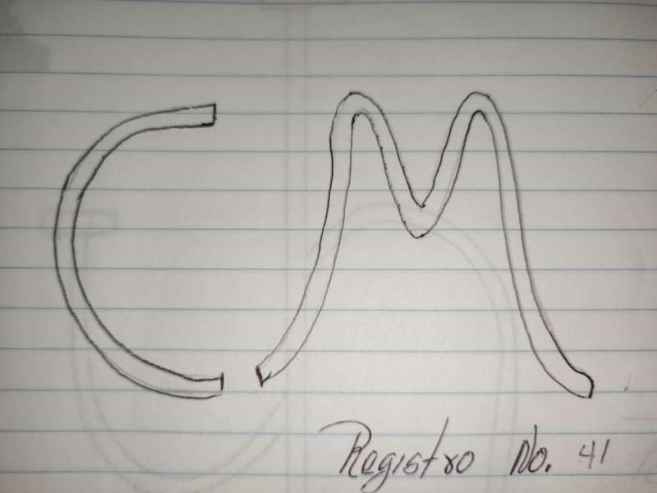 CM
Registro No. 41